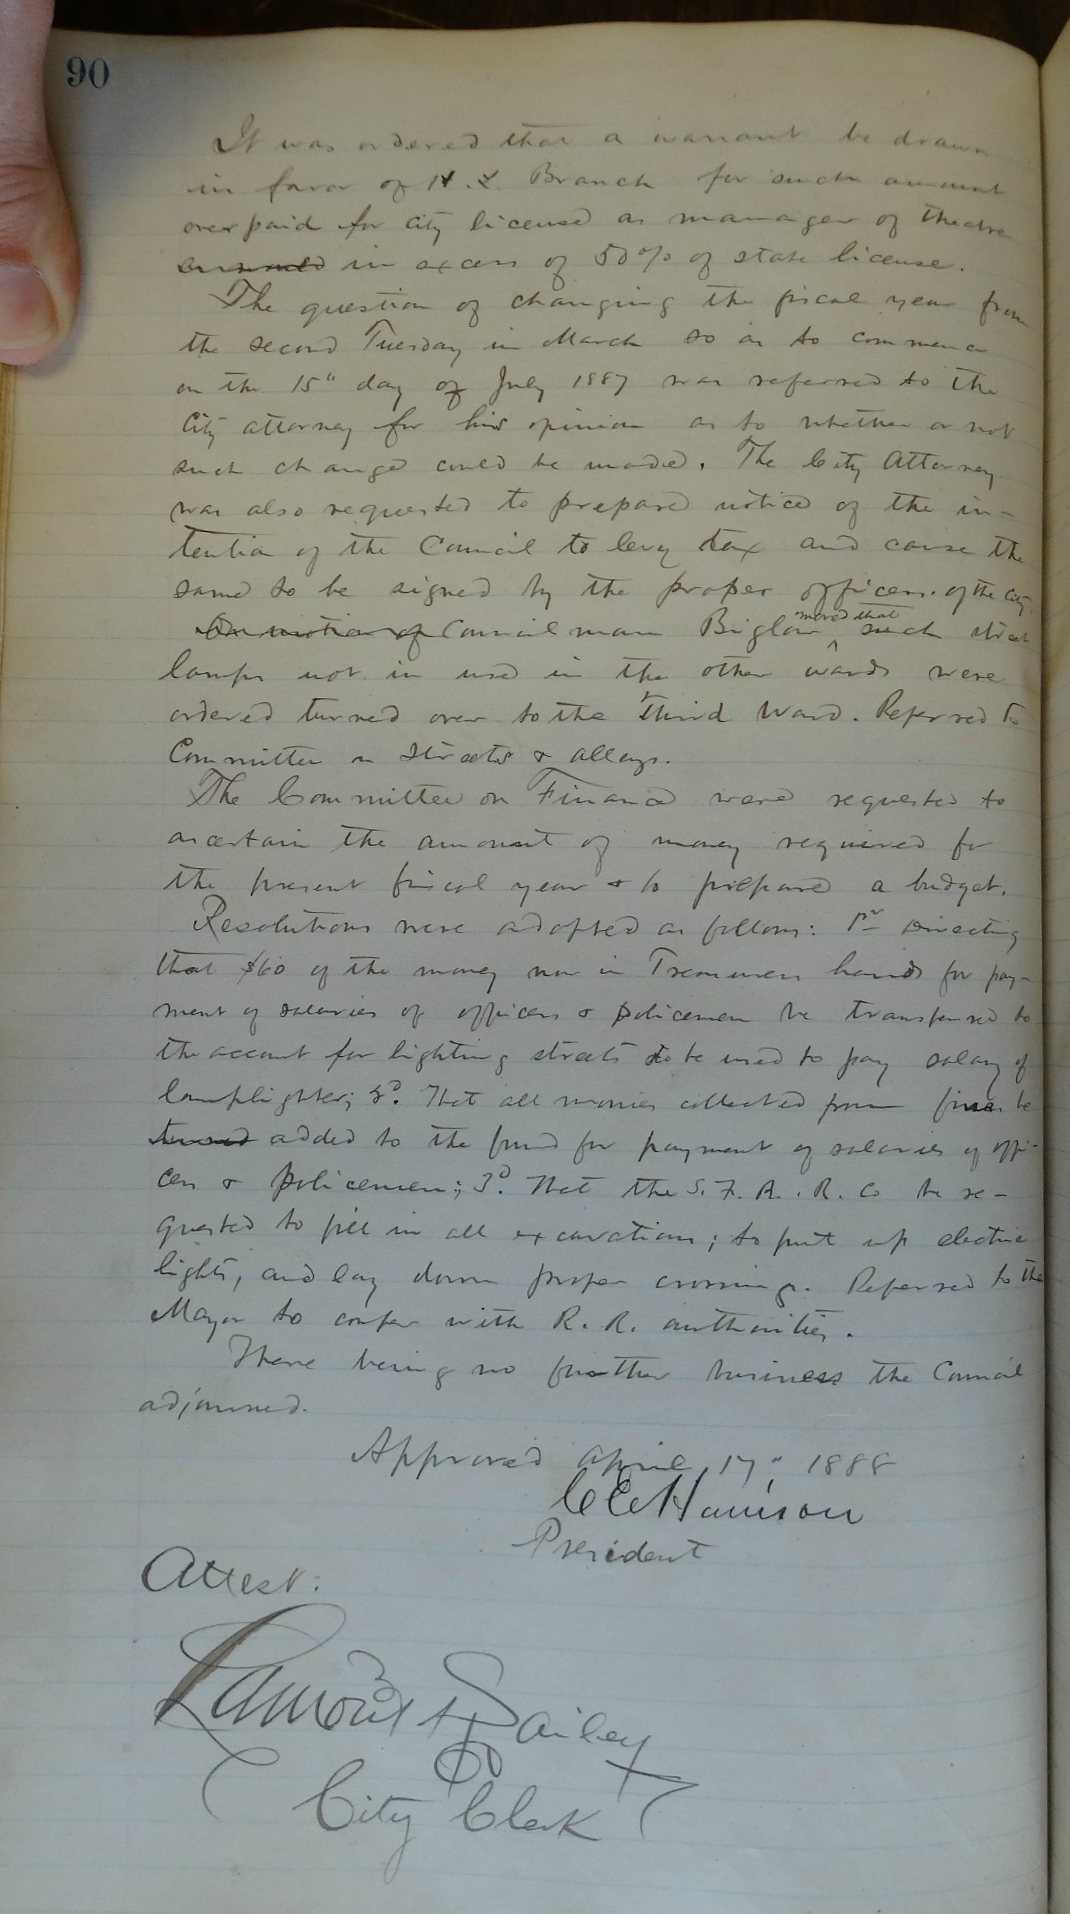 90
It was ordered that a warrant be drawn
in favor of H. L. Branch for such amount
overpaid for city license as manager of theatre
in excess of 50% of state license.
The question of changing the fiscal year from
the second Tuesday in March so as to commence
on the 15" day of July 1887 was referred to the
City attorney for his opinion as to whether or not
such change could be made. The City Attorney
was also requested to prepare notice of the in-
tention of the Council to levy tax and cause the
same to be signed by the proper officers of the City.
On motion of Councilman Biglow moved that such street
lamps not in use in the other wards were
ordered turned over to the Third Ward. Referred to
Committee on Streets & alleys.
The Committee on Finance were requested to
ascertain the amount of money required for
the present fiscal year & to prepare a budget.
Resolutions were adopted as follows: 1st Directing
that $60 of the money now in Treasurers hands for pay-
ment of salaries of officers & policemen be transferred to
the account for lighting streets to be used to pay salary of
lamplighter; 2d. That all monies collected from fines be
turned added to the fund for payment of salaries of offi-
cers & policemen; 3d. That the S. F. R. R. Co be re-
quested to fill in all excavations; to put up electric
lights, and lay down proper crossings. Referred to the
Mayor to confer with R. R. authorities.
There being no further business the Council
adjourned.
Approved April 17", 1888
C C Harrison
President
Attest:
Bailey
City Clerk